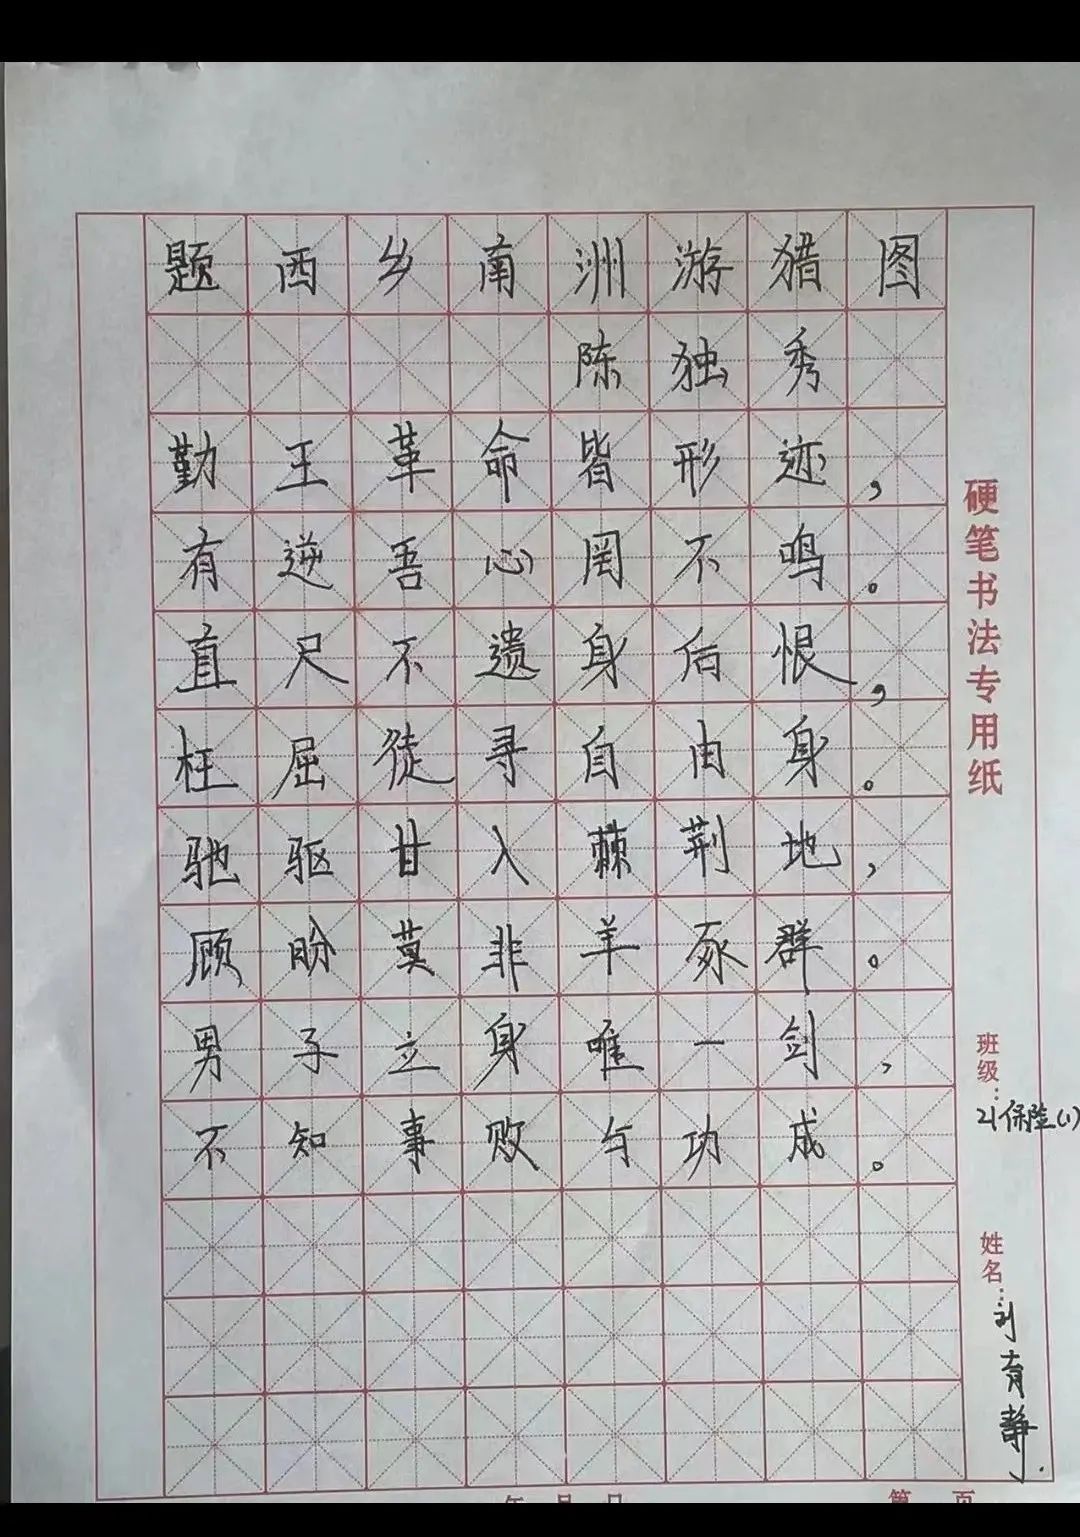 题西乡南洲游猎图
陈独秀
勤王革命皆形迹，
有逆吾心罔不鸣。
直尺不遗身后恨，
枉屈徒寻自由身。
驰驱甘入棘荆地，
顾盼莫非羊豕群。
男子立身唯一剑，
不知事败与功成。
硬笔书法专用纸
班级：21保险(1)
姓名：刘育静.
年 月 日
第 页